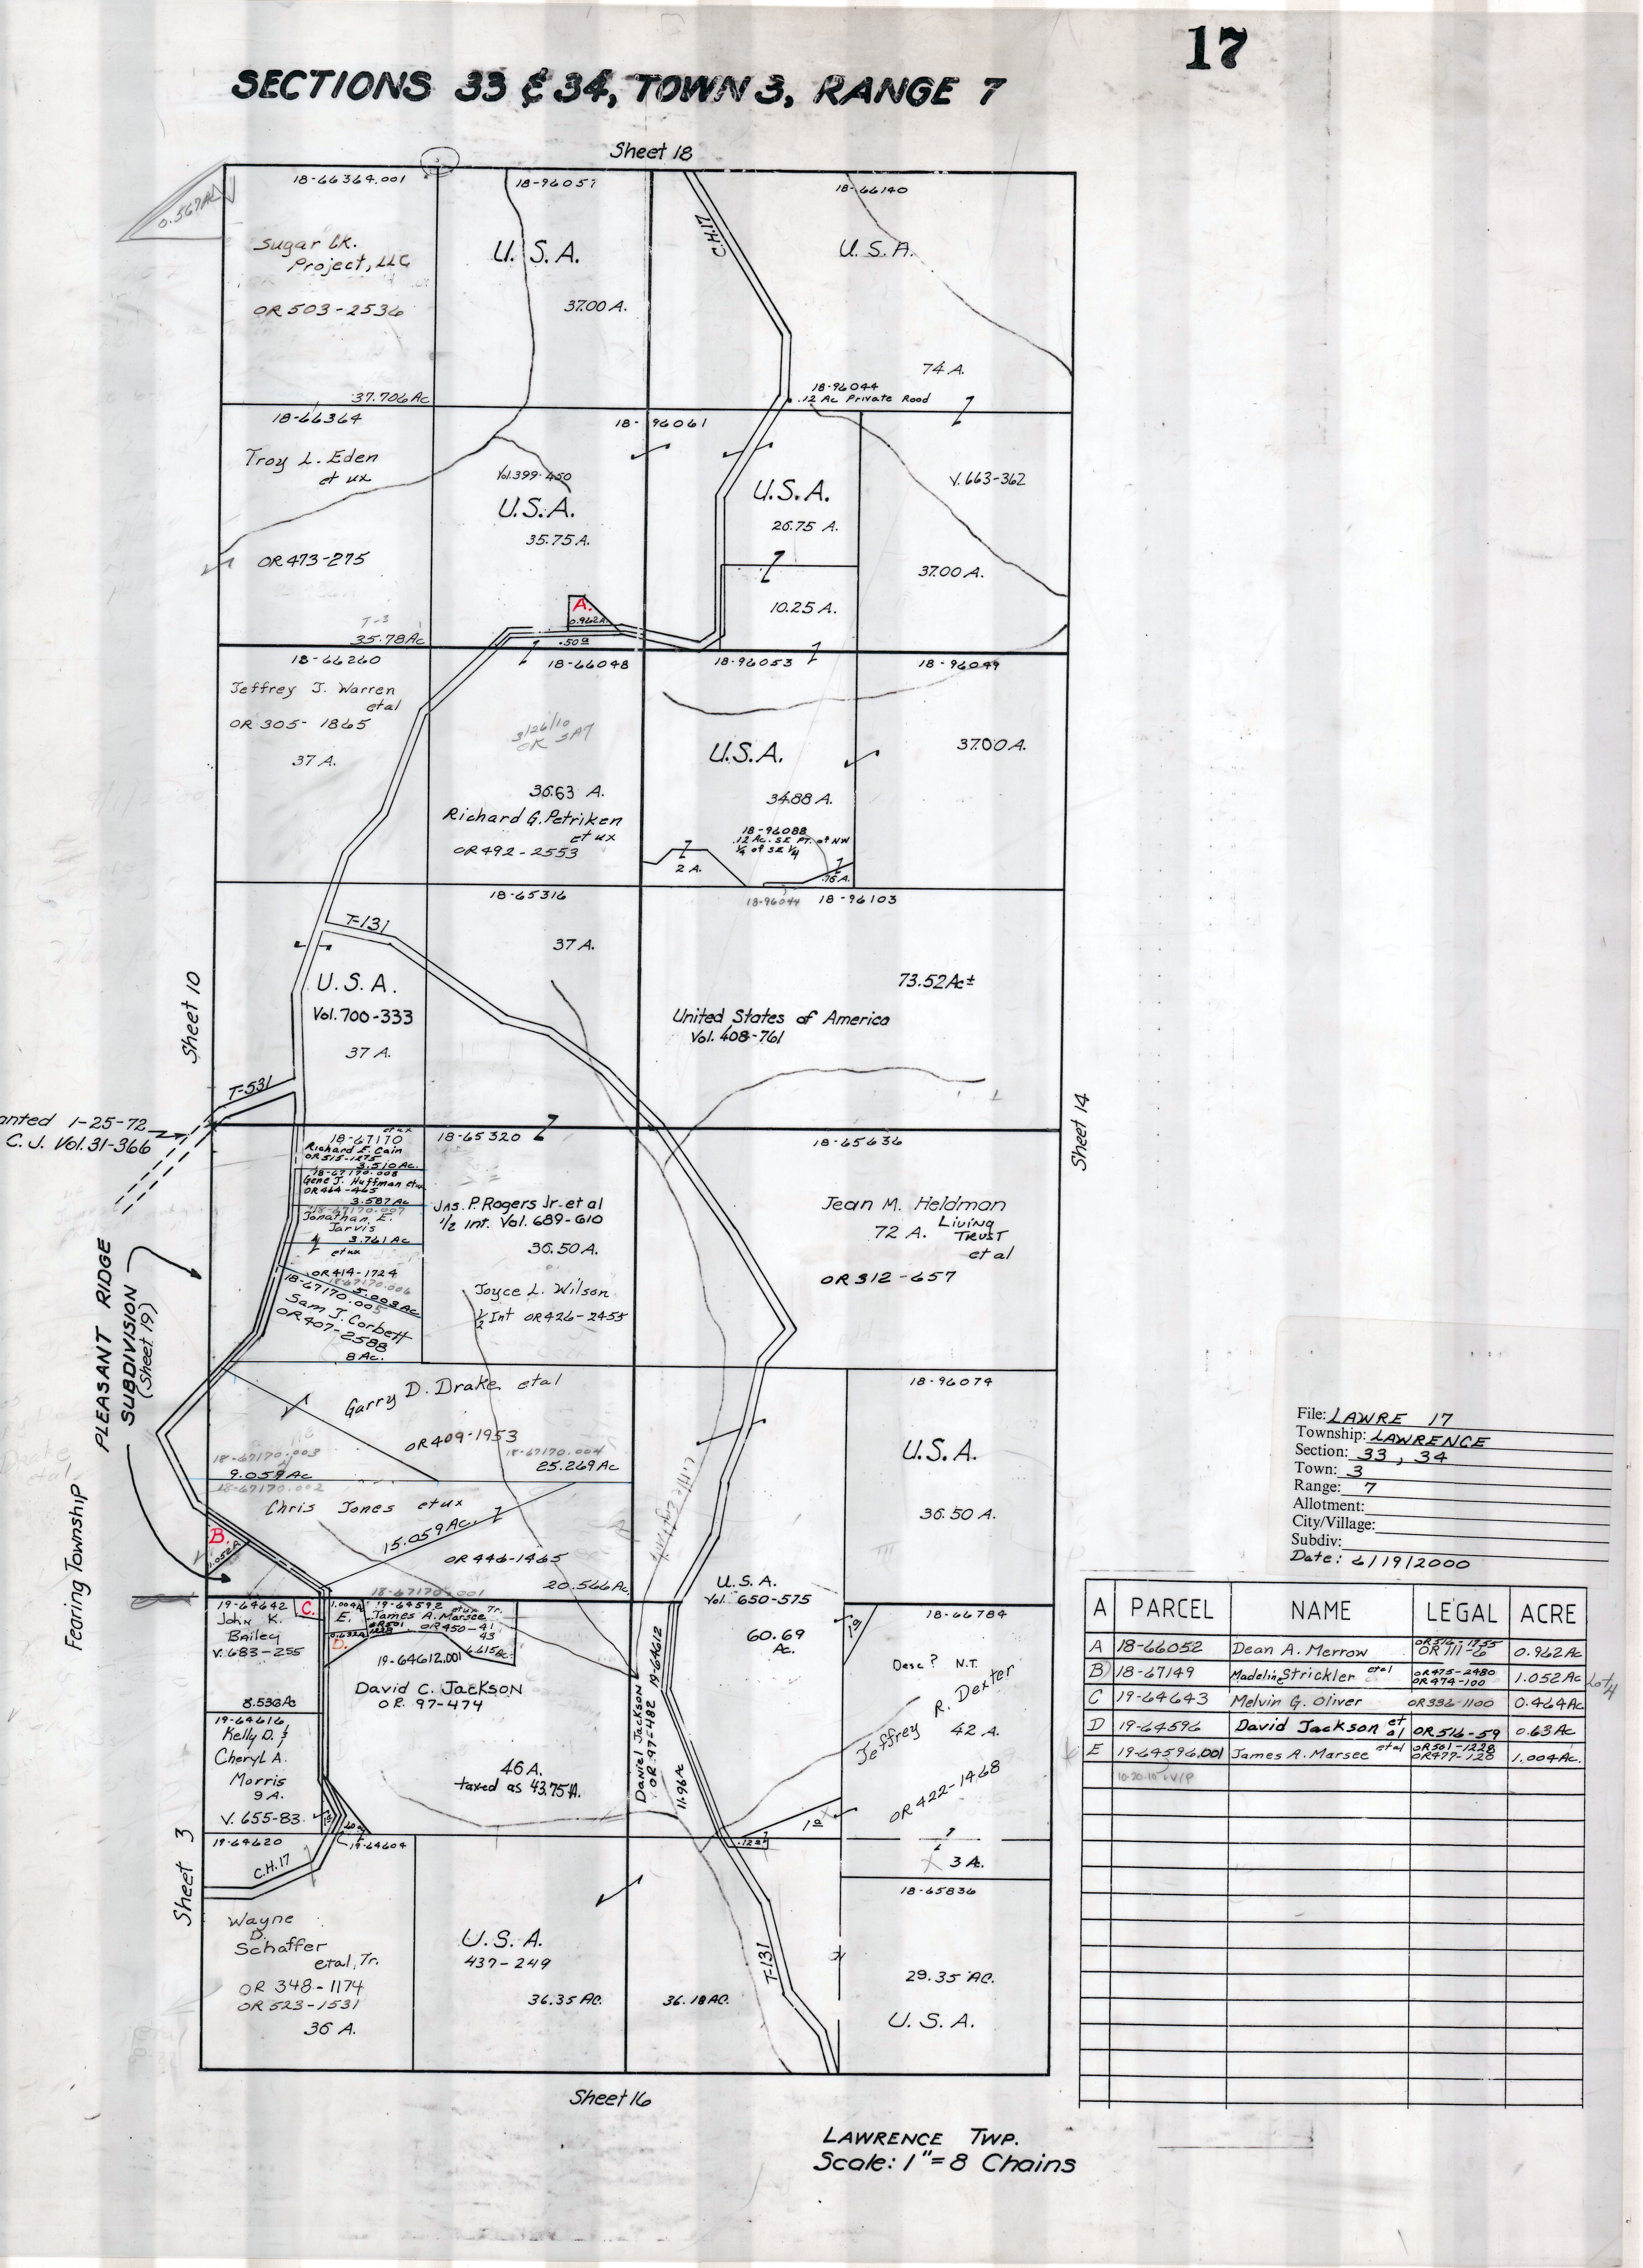 17
SECTIONS 33 & 34, TOWN 3, RANGE 7
Sheet 18
0.567AC
18-66364.001
Sugar CK.
Project, LLC
OR 503-2536
37.706 Ac
18-96057
U.S.A.
37.00 A.
C.H.17
18-66140
U.S.A.
74 A.
18-96044
.12 Ac Private Road
18-66364
Troy L. Eden
et ux
OR 473-275
T-3
35.78 Ac
18-96061
Vol.399-450
U.S.A.
35.75 A.
A.
0.962A
.50a
U.S.A.
26.75 A.
10.25 A.
V.663-362
37.00 A.
18-66260
Jeffrey J. Warren
etal
OR 305-1865
37 A.
18-66048
3/26/10
36.63 A.
Richard G. Petriken
et ux
OR 492-2553
18-96053
U.S.A.
34.88 A.
18-96088
.12 Ac. SE PT. of NW
1/4 of SE 1/4
2 A.
.75 A.
18-96049
37.00 A.
T-131
U.S.A.
Vol. 700-333
37 A.
18-65316
37 A.
18-96044
18-96103
73.52 Ac±
United States of America
Vol. 408-761
Sheet 10
T-531
anted 1-25-72
C.J. Vol.31-366
Sheet 14
et ux
18-67170
Richard E. Cain
OR 515-1275
3.510 Ac.
18-67170.008
Gene J. Huffman etux
OR 464-465
3.587 Ac
18-67170.007
Jonathan E.
Jarvis
3.761 Ac
et ux
OR 414-1724
18-67170.006
5.003 Ac
18-67170.005
Sam J. Corbett
OR 407-2588
8 Ac.
18-65320
Jas. P. Rogers Jr. et al
1/2 Int. Vol. 689-610
36.50 A.
Joyce L. Wilson
1/2 Int OR 426-2455
18-65636
Jean M. Heldman
72 A. Living
TRUST
et al
OR 312-657
PLEASANT RIDGE
SUBDIVISION
(Sheet 19)
Fearing Township
Garry D. Drake etal
OR 409-1953
18-67170.003
9.059 Ac
18-67170.004
25.269 Ac
18-67170.002
Chris Jones et ux
15.059 Ac.
OR 446-1465
20.566 Ac.
18-67170.001
B.
1.052A
18-96074
U.S.A.
36.50 A.
U.S.A.
Vol. 650-575
60.69
Ac.
19-64642
John K.
Bailey
V. 683-255
8.538 Ac
C.
1.004A
E.
0.632A
D.
19-64592 etux Tr.
James A. Marsee
OR 450-41
43
6.615 Ac
19-64612.001
David C. Jackson
OR. 97-474
46 A.
taxed as 43.75 A.
Daniel Jackson 19-64612
OR 97-482
11.96 Ac
18-66784
Desc? N.T.
Jeffrey R. Dexter
42 A.
OR 422-1468
1a
1a
.12a
3 A.
19-64616
Kelly D. &
Cheryl A.
Morris
9 A.
V. 655-83
19-64620
19-64604
C.H.17
Sheet 3
Wayne
D.
Schaffer
etal, Tr.
OR 348-1174
OR 523-1531
36 A.
U.S.A.
437-249
36.35 AC.
36.18 AC.
T-131
18-65836
29.35 AC.
U.S.A.
Sheet 16
LAWRENCE TWP.
Scale: 1"=8 Chains
File: LAWRE 17
Township: LAWRENCE
Section: 33, 34
Town: 3
Range: 7
Allotment:
City/Village:
Subdiv:
Date: 6/19/2000
A PARCEL NAME LEGAL ACRE
A 18-66052 Dean A. Merrow OR 111-6 0.962 Ac
B 18-67149 Madeline Strickler etal OR 475-2480 OR 474-100 1.052 Ac Lot 4
C 19-64643 Melvin G. Oliver OR 336-1100 0.464 Ac
D 19-64596 David Jackson et al OR 516-59 0.63 Ac
E 19-64596.001 James A. Marsee etal OR 501-1228 OR 477-120 1.004 Ac.